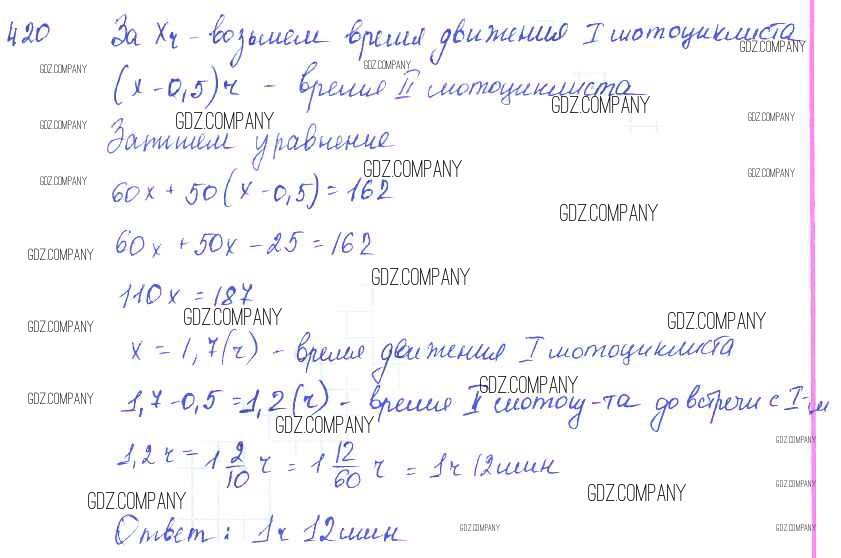 420 За х ч - возьмем время движения I мотоциклиста
GDZ.COMPANY
GDZ.COMPANY GDZ.COMPANY
(х - 0,5) ч - время II мотоциклиста
GDZ.COMPANY
GDZ.COMPANY GDZ.COMPANY GDZ.COMPANY
Запишем уравнение
GDZ.COMPANY GDZ.COMPANY
GDZ.COMPANY
60х + 50(х - 0,5) = 162
GDZ.COMPANY
60х + 50х - 25 = 162
GDZ.COMPANY
GDZ.COMPANY
110х = 187
GDZ.COMPANY GDZ.COMPANY
GDZ.COMPANY
х = 1,7(ч) - время движения I мотоциклиста
GDZ.COMPANY
GDZ.COMPANY
1,7 - 0,5 = 1,2(ч) - время II мотоц-та до встречи с I-м
GDZ.COMPANY
GDZ.COMPANY
1,2 ч = 1 2/10 ч = 1 12/60 ч = 1ч 12мин
GDZ.COMPANY
GDZ.COMPANY GDZ.COMPANY
Ответ: 1ч 12мин
GDZ.COMPANY GDZ.COMPANY